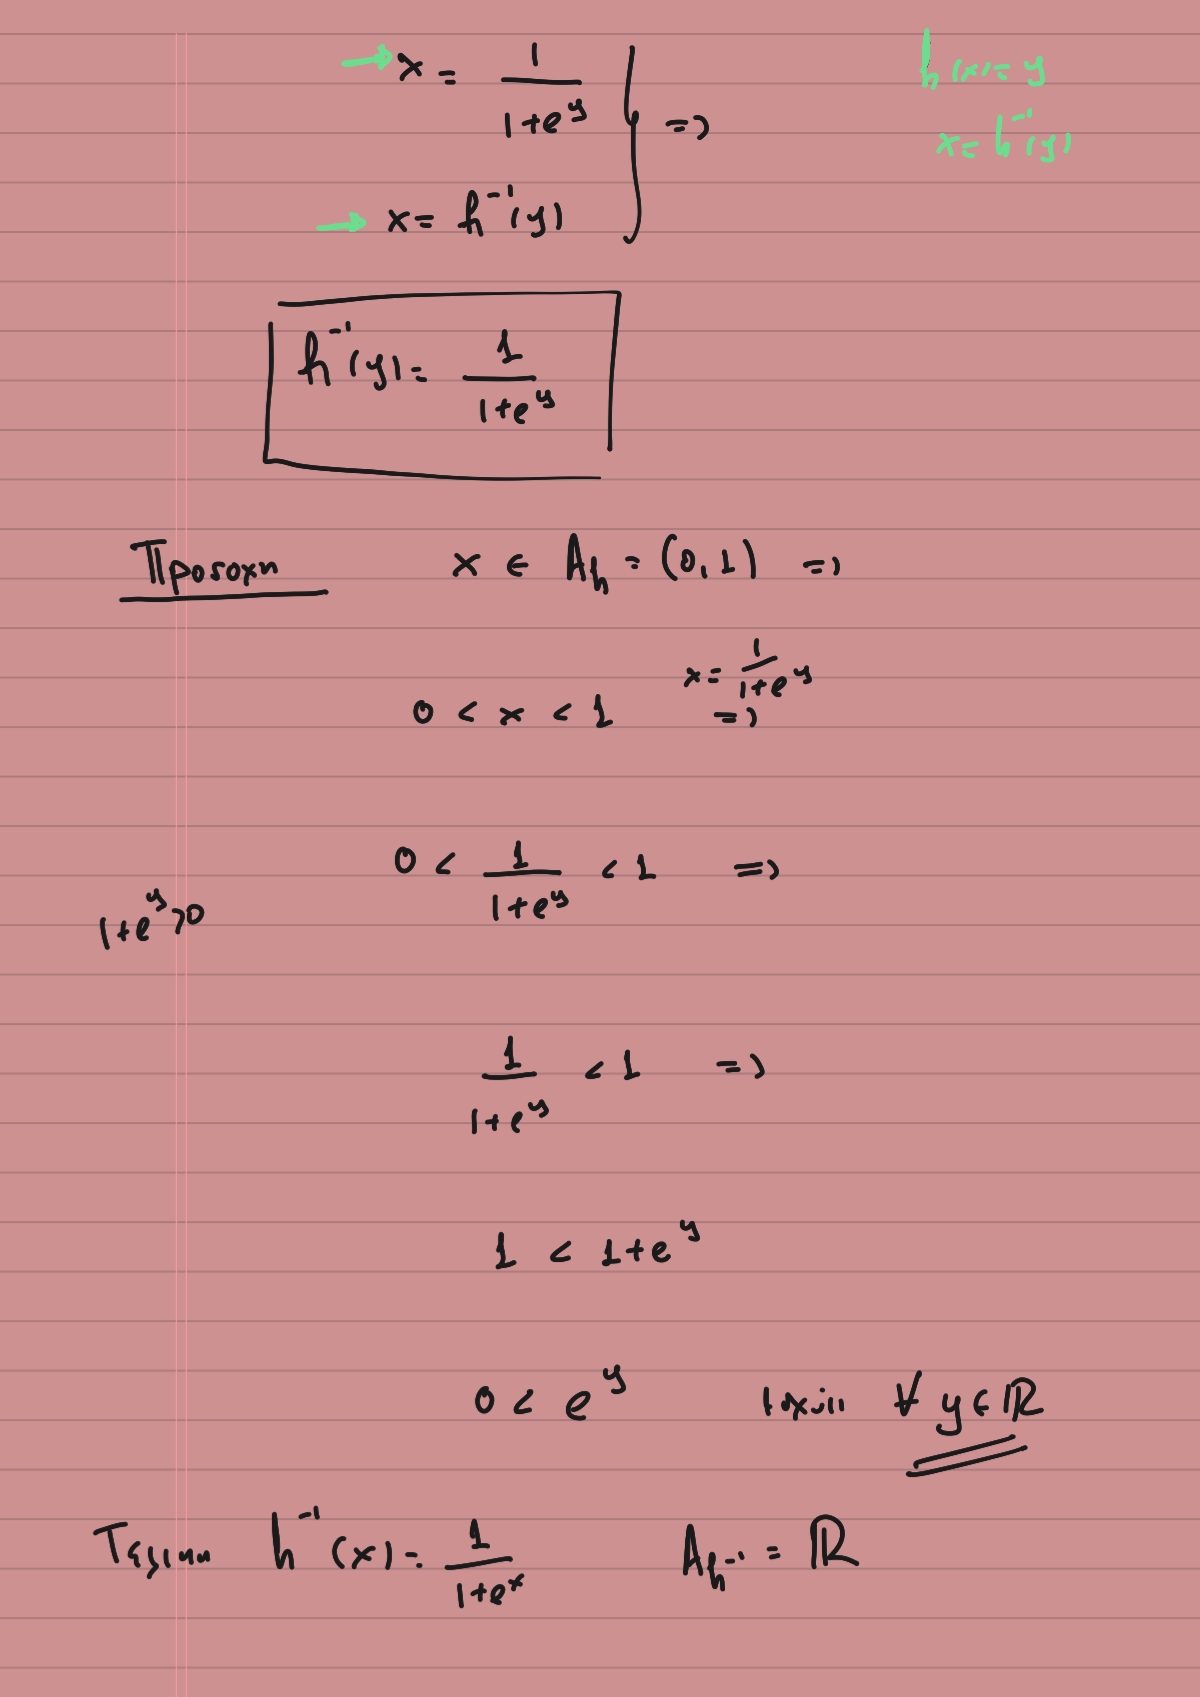 → x = 1/(1+e^y) } =>
h(x) = y
x = h^-1(y)
→ x = h^-1(y)
h^-1(y) = 1/(1+e^y)
Προσοχη x ∈ A_h = (0,1) =>
x = 1/(1+e^y)
0 < x < 1 =>
0 < 1/(1+e^y) < 1 =>
1+e^y > 0
1/(1+e^y) < 1 =>
1 < 1+e^y
0 < e^y ισχυει ∀ y ∈ ℝ
Τελικη h^-1(x) = 1/(1+e^x) A_h^-1 = ℝ